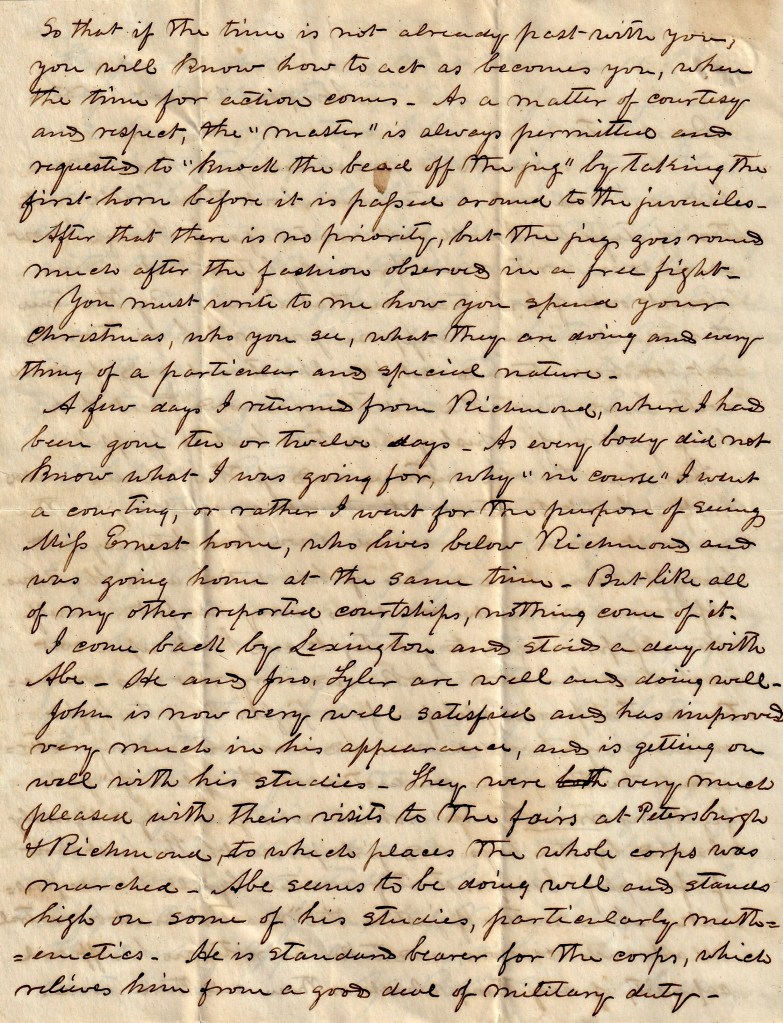 So that if the time is not already past with you,
you will know how to act as becomes you, when
the time for action comes - As a matter of courtesy
and respect, the "master" is always permitted and
requested to "knock the bead off the jug" by taking the
first horn before it is passed around to the juveniles -
After that there is no priority, but the jug goes round
much after the fashion observed in a free fight -
You must write to me how you spend your
Christmas, who you see, what they are doing and every
thing of a particular and special nature -
A few days I returned from Richmond, where I had
been gone ten or twelve days - As every body did not
know what I was going for, why "in course" I went
a courting, or rather I went for the purpose of seeing
Miss Ernest home, who lives below Richmond and
was going home at the same time - But like all
of my other reported courtships, nothing come of it.
I come back by Lexington and staid a day with
Abe - He and Jno. Lyler are well and doing well -
John is now very well satisfied and has improved
very much in his appearance, and is getting on
well with his studies - They were both very much
pleased with their visits to the fairs at Petersburgh
& Richmond, to which places the whole corps was
marched - Abe seems to be doing well and stands
high on some of his studies, particularly math=
=ematics - He is standard bearer for the corps, which
relieves him from a good deal of military duty -